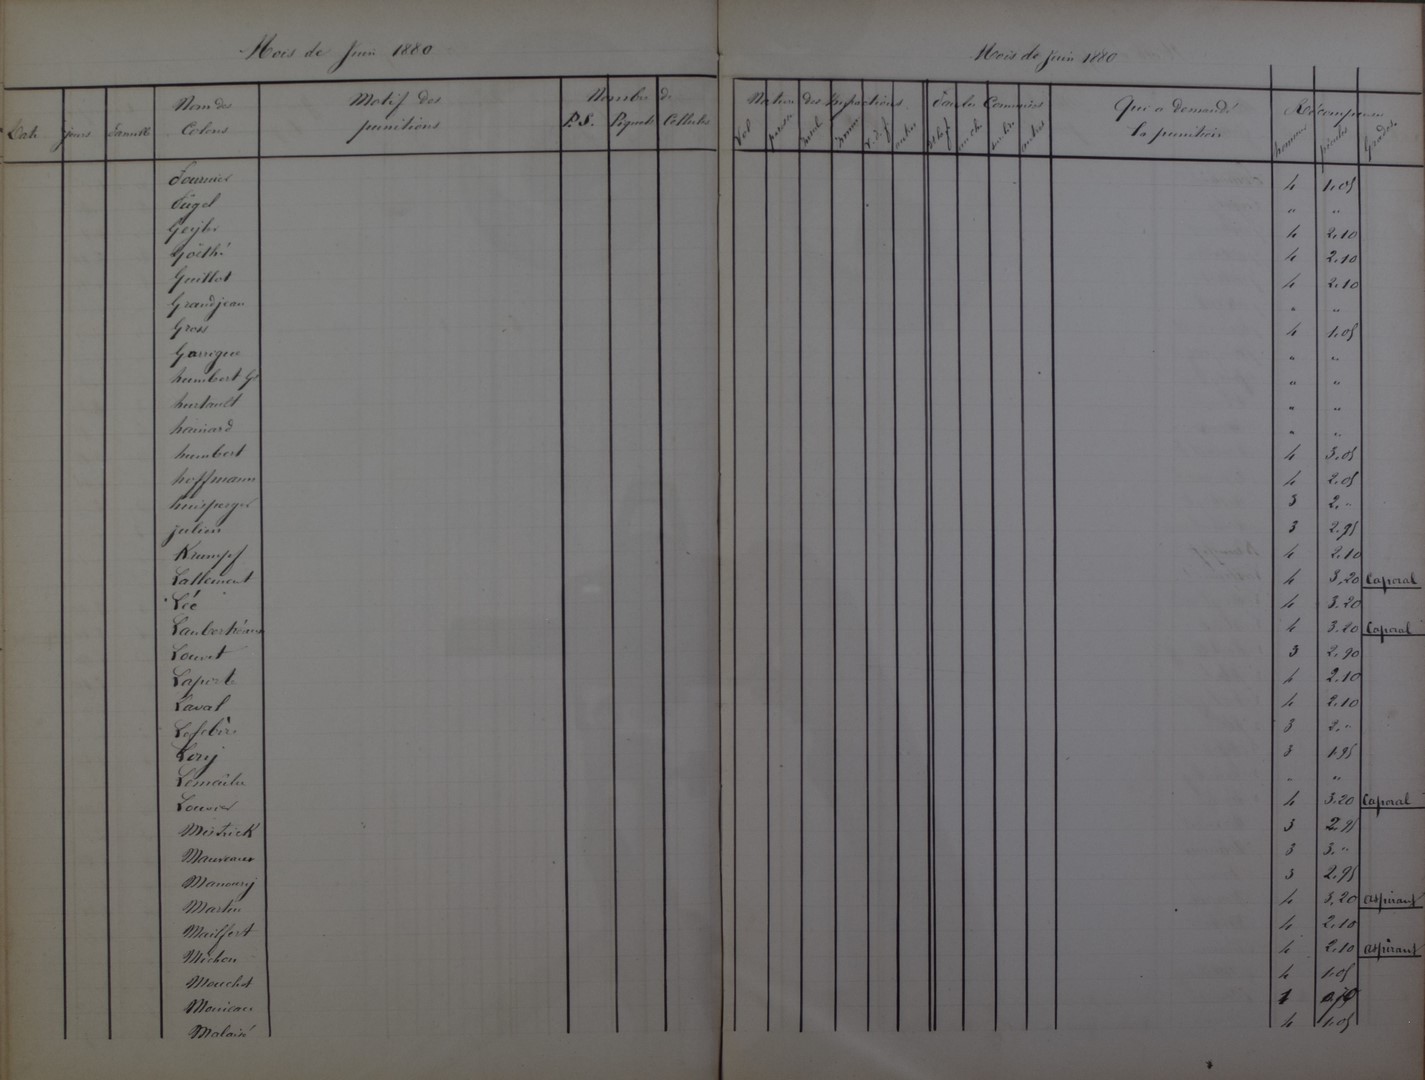 Mois de Juin 1880
Mois de Juin 1880
Date Jours Famille Nom des Colons Motif des punitions Nombre de P.S. Piquets Cellules
Nature des Infractions Fautes Commises Qui a demandé la punition Récompenses
Vol autres autres honneur pécules Grades
Fournier 4 1,05
Fügel " "
4 2,10
Goëthé 4 2,10
Guillot 4 2,10
Grandjean " "
Gross 4 1,05
Garrigue " "
humbert Ge " "
hurtault " "
hainard " "
humbert 4 3,05
hoffmann 4 2,05
3 2,"
julien 3 2,95
Kumpf 4 2,10
Lallement 4 3,20 Caporal
Léé 4 3,20
4 3,20 Caporal
Louvet 3 2,90
Laporte 4 2,10
Laval 4 2,10
Lefebvre 3 2,"
Lory 3 1,95
Lemaitre " "
Louvier 4 3,20 Caporal
Mistrick 3 2,95
Mauveaux 3 3,"
Manoury 3 2,95
Martin 4 3,20 aspirant
Mailfert 4 2,10
Michon 4 2,10 aspirant
Mouchot 4 1,05
1
Maloisé 4 1,05